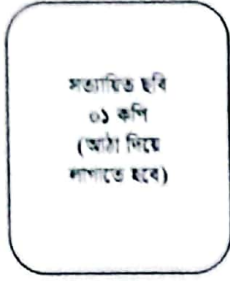 সত্যায়িত ছবি
০১ কপি
(আঠা দিয়ে
লাগাতে হবে)